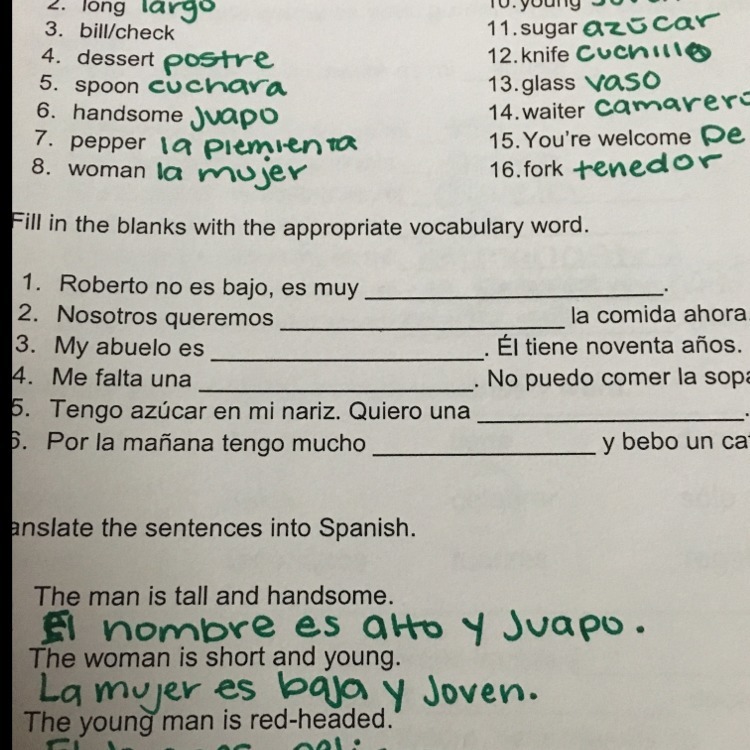 2. long largo
3. bill/check
4. dessert postre
5. spoon cuchara
6. handsome Juapo
7. pepper la piemienta
8. woman la mujer
10. young
11. sugar azúcar
12. knife cuchillo
13. glass vaso
14. waiter camarero
15. You're welcome De
16. fork tenedor
Fill in the blanks with the appropriate vocabulary word.
1. Roberto no es bajo, es muy ____________________.
2. Nosotros queremos ____________________ la comida ahora.
3. My abuelo es ____________________. Él tiene noventa años.
4. Me falta una ____________________. No puedo comer la sopa
5. Tengo azúcar en mi nariz. Quiero una ____________________.
6. Por la mañana tengo mucho ____________________ y bebo un ca
anslate the sentences into Spanish.
The man is tall and handsome.
El nombre es alto y Juapo.
The woman is short and young.
La mujer es baja y Joven.
The young man is red-headed.